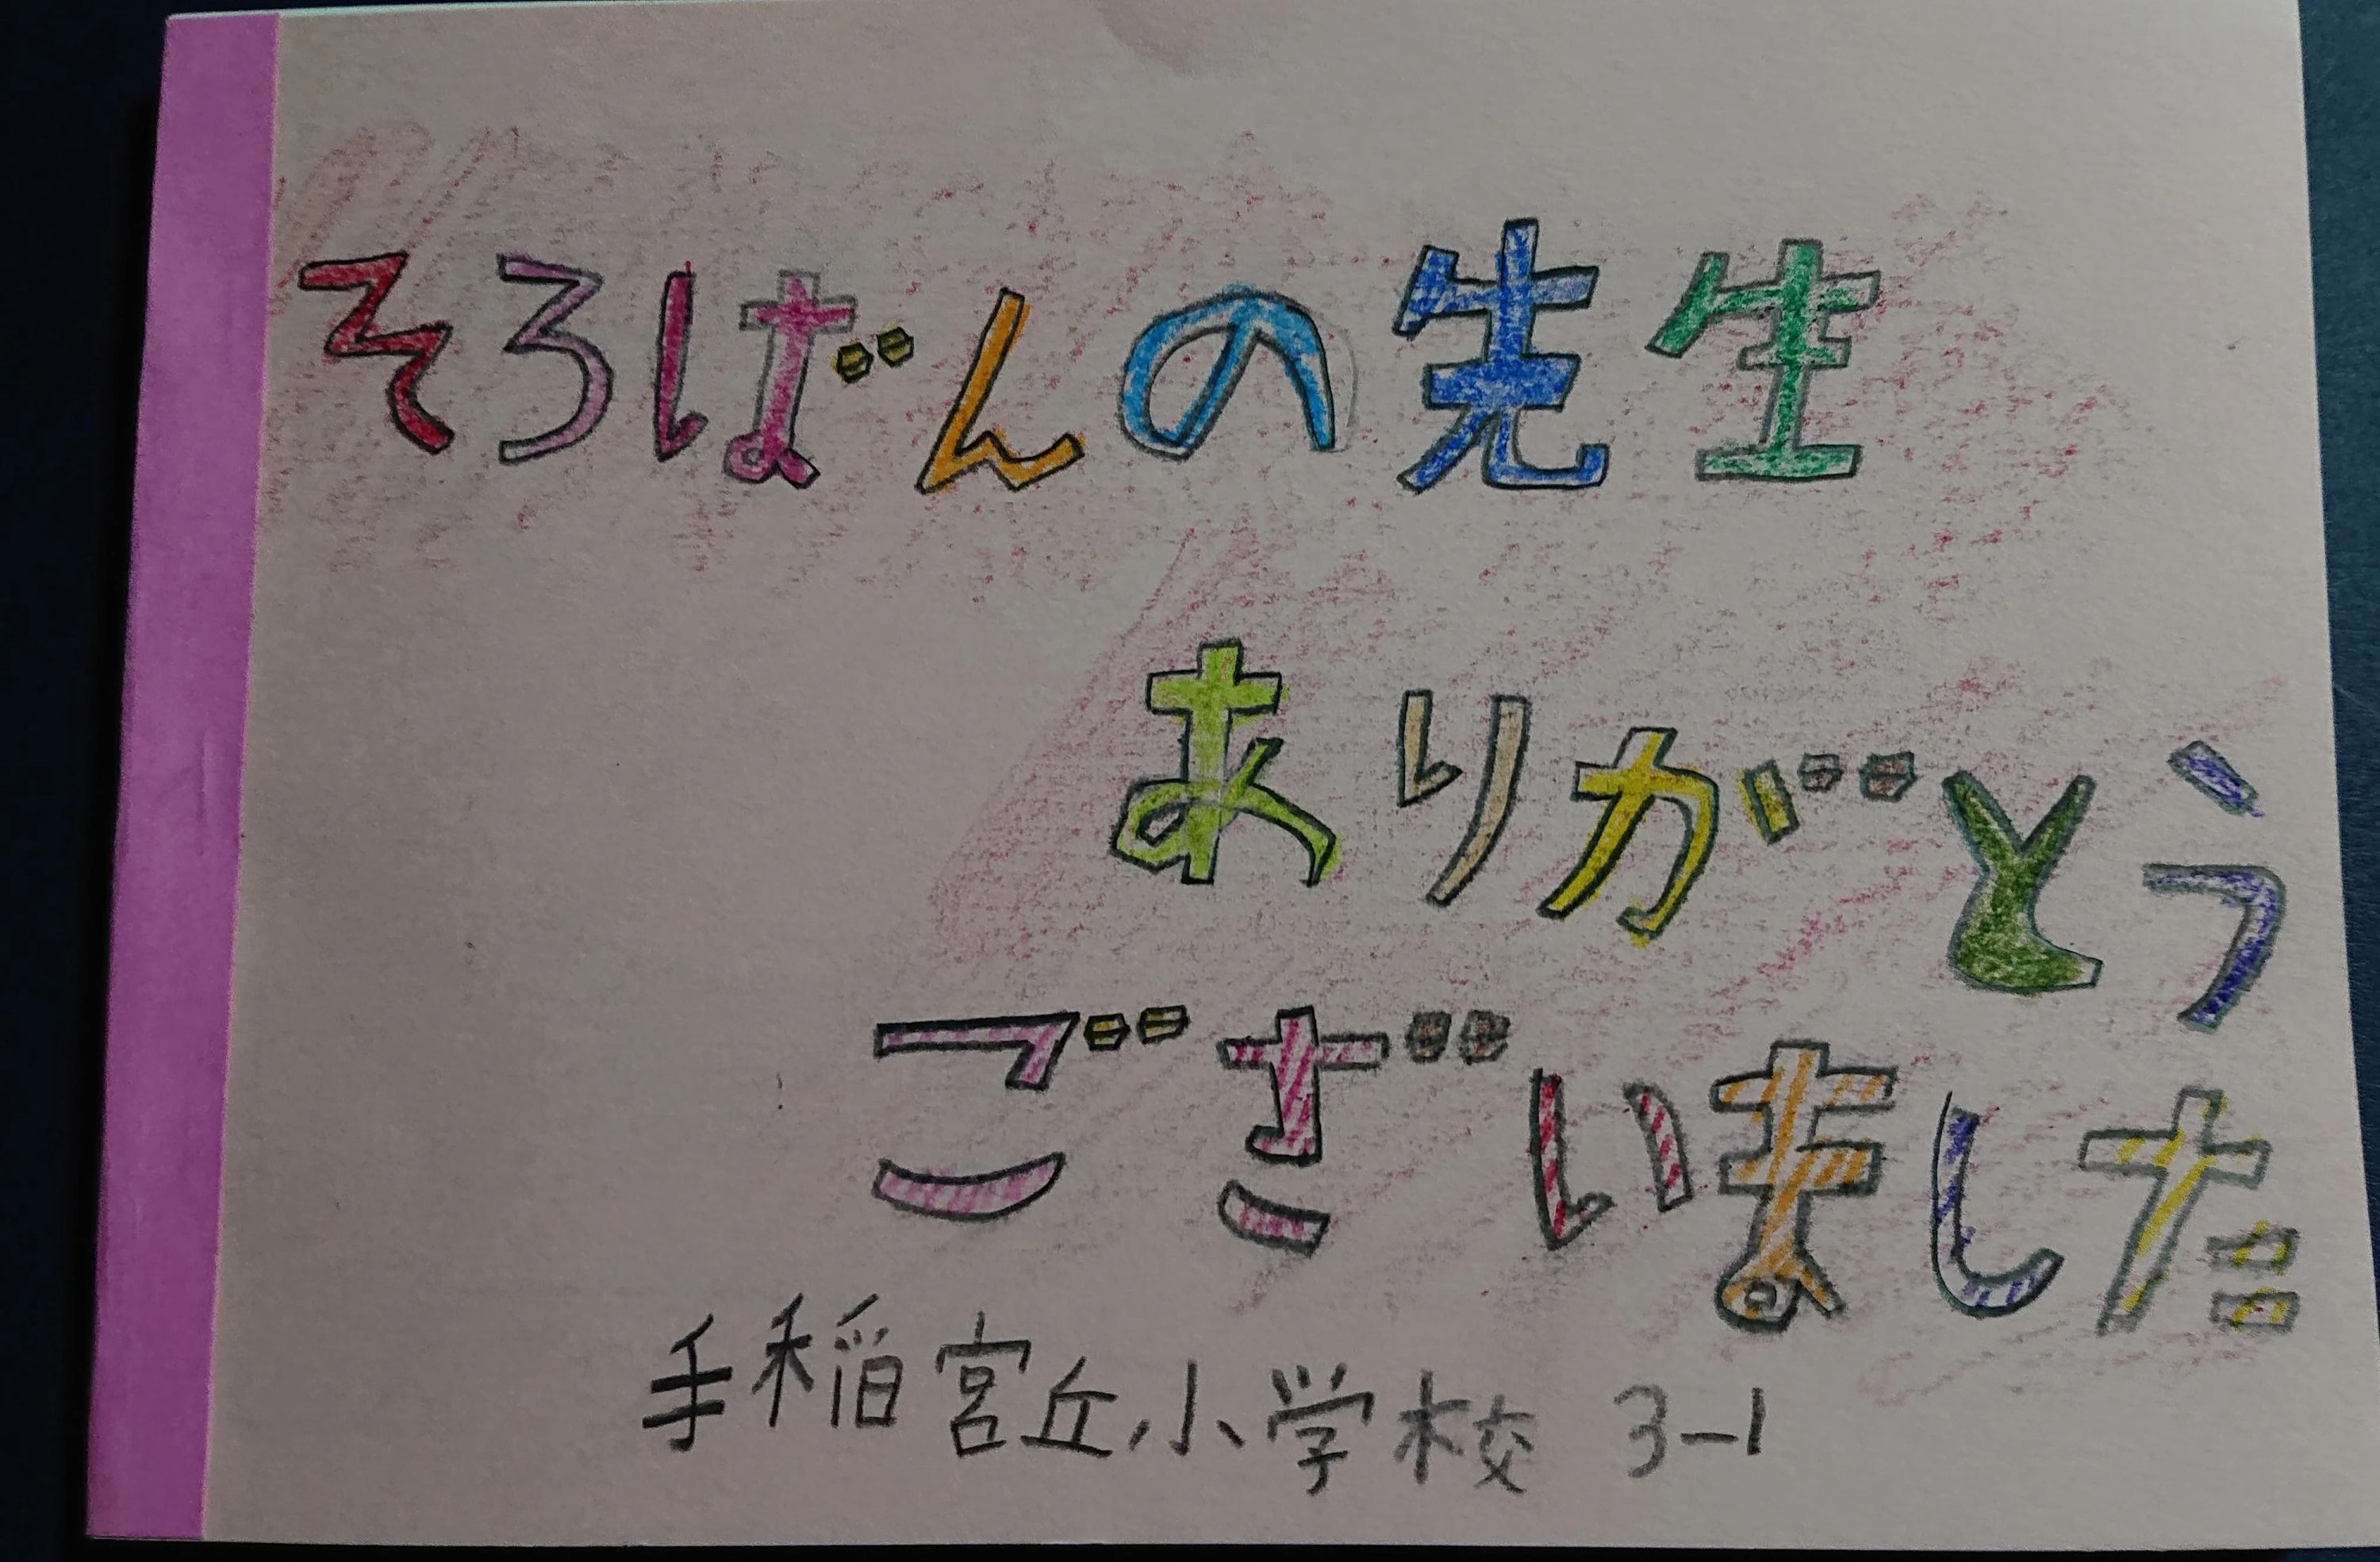 そろばんの先生
ありがとう
ございました
手稲宮丘小学校 3-1